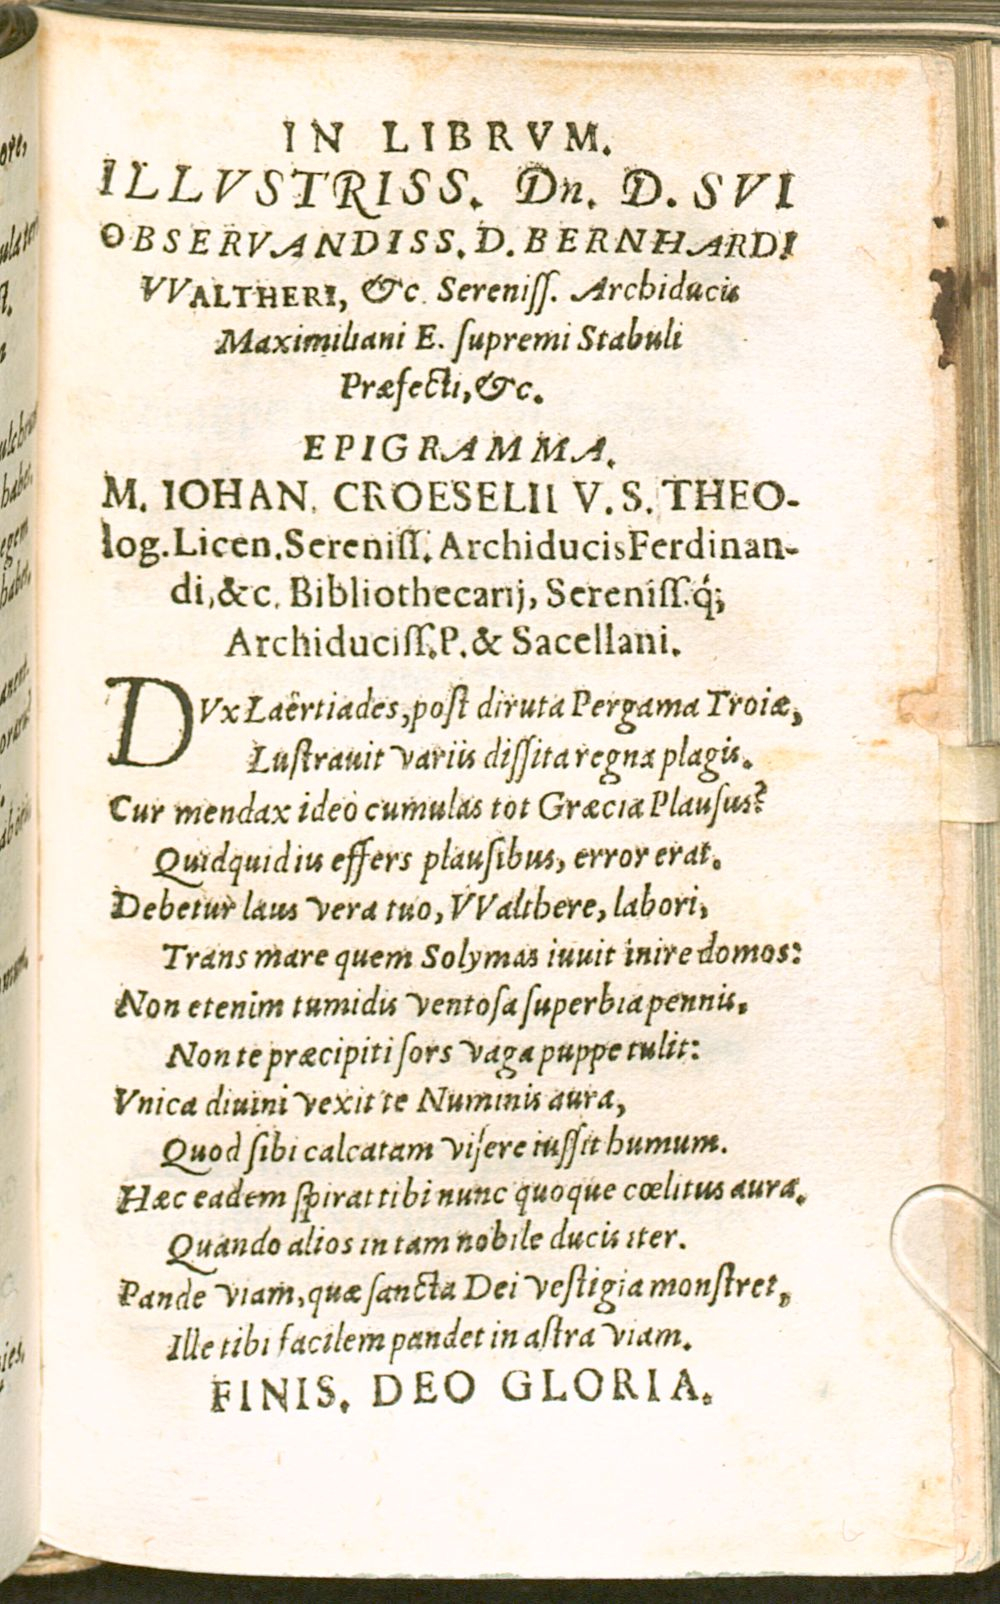 IN LIBRVM.
ILLVSTRISS. Dn. D. SVI
OBSERVANDISS. D. BERNHARDI
VVALTHERI, &c. Sereniſſ. Archiducis
Maximiliani E. ſupremi Stabuli
Præfecti, &c.
EPIGRAMMA.
M. IOHAN. CROESELII V. S. THEO-
log. Licen. Sereniſſ. Archiducis Ferdinan-
di, &c. Bibliothecarij, Sereniſſ. q́;
Archiduciſſ. P. & Sacellani.
DVx Laërtiades, poſt diruta Pergama Troiæ,
Luſtrauit variis diſſita regna plagis.
Cur mendax ideo cumulas tot Græcia Plauſus?
Quidquid iis effers plauſibus, error erat.
Debetur laus vera tuo, VValthere, labori,
Trans mare quem Solymas iuuit inire domos:
Non etenim tumidis ventoſa ſuperbia pennis,
Non te præcipiti ſors vaga puppe tulit:
Vnica diuini vexit te Numinis aura,
Quod ſibi calcatam viſere iuſſit humum.
Hæc eadem ſpirat tibi nunc quoque cœlitus aura,
Quando alios in tam nobile ducis iter.
Pande viam, quæ ſancta Dei veſtigia monſtret,
Ille tibi facilem pandet in aſtra viam.
FINIS. DEO GLORIA.